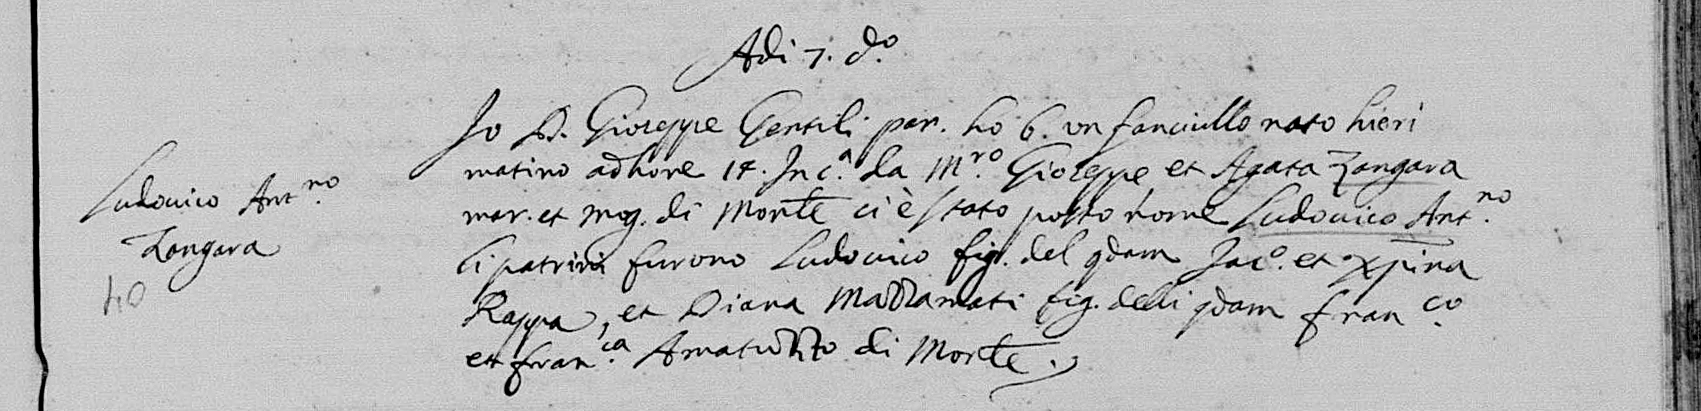 Adi 7. d.º
Io D. Gioseppe Gentili par. hò b. un fanciullo nato hieri
matino ad hore 14. Inc.ª da M.ro Gioseppe et Agata Zangara
mar. et mog. di Monte ci è stato posto nome Ludovico Ant.no
li patrini furono Ludovico fig. del qdam Jac.º et Xpina
Rappa, et Diana fig. delli qdam Fran.co
et Fran.ca di Monte.
Ludovico Ant.no
Zangara
40